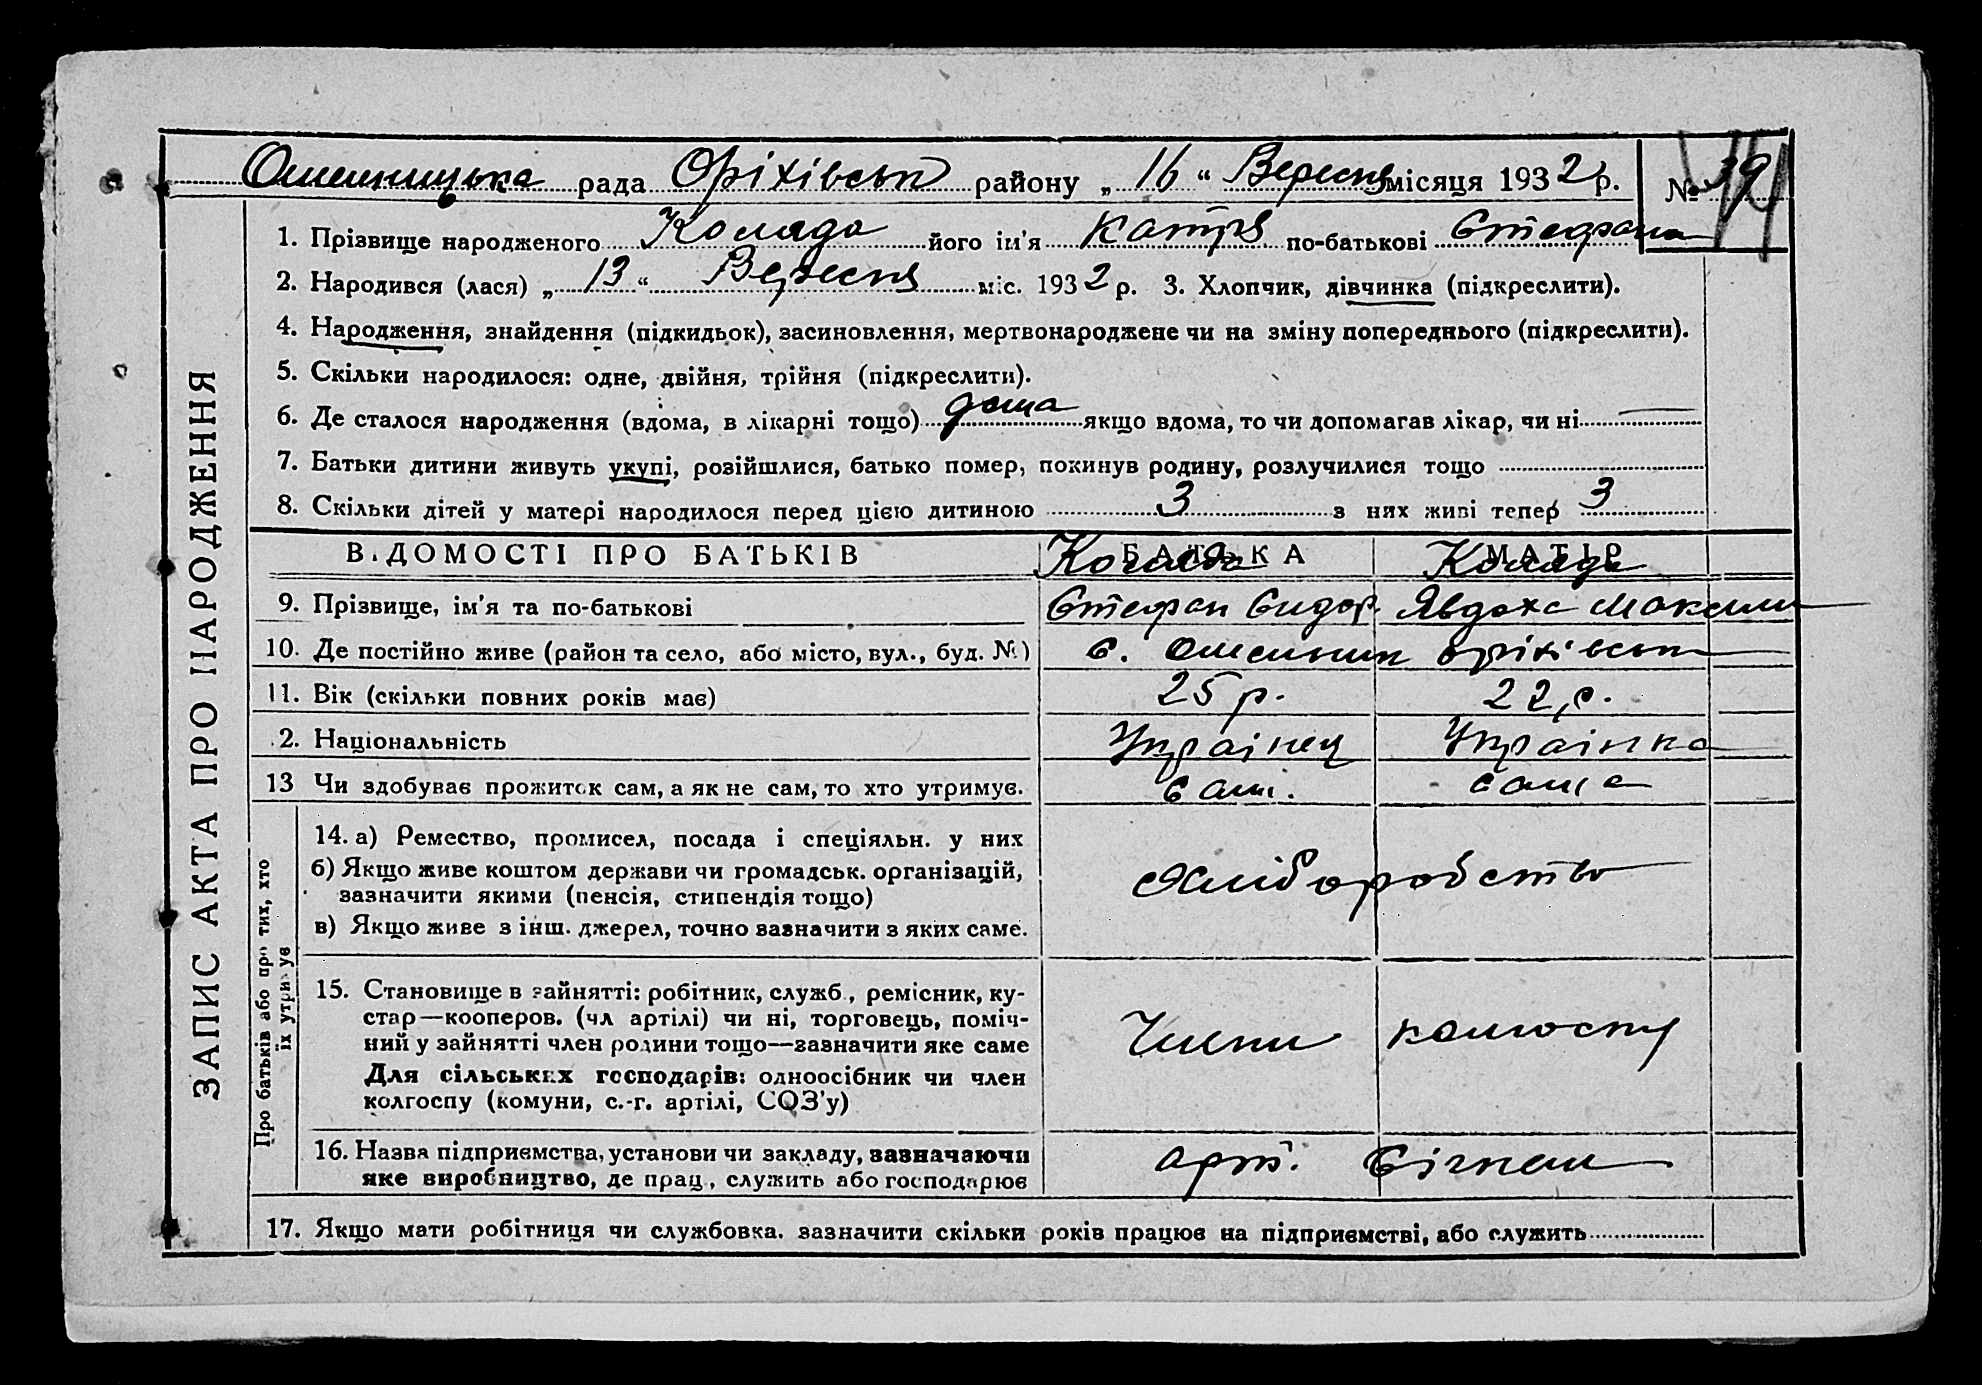 Омельницька рада Оріхівськ району „ 16 “ Вересня місяця 1932 р. № 39
1. Прізвище народженого Коляда його ім'я Катря по-батькові Стефана
2. Народився (лася) „ 13 “ Вересня міс. 1932 р. 3. Хлопчик, дівчинка (підкреслити).
4. Народження, знайдення (підкидьок), засиновлення, мертвонароджене чи на зміну попереднього (підкреслити).
5. Скільки народилося: одне, двійня, трійня (підкреслити).
6. Де сталося народження (вдома, в лікарні тощо) дома якщо вдома, то чи допомагав лікар, чи ні —
7. Батьки дитини живуть укупі, розійшлися, батько помер, покинув родину, розлучилися тощо
8. Скільки дітей у матері народилося перед цією дитиною 3 з них живі тепер 3
ЗАПИС АКТА ПРО НАРОДЖЕННЯ
ВІДОМОСТІ ПРО БАТЬКІВ БАТЬКА МАТІР
Коляда Коляда
9. Прізвище, ім'я та по-батькові Стефан Сидор. Явдоха Максим
10. Де постійно живе (район та село, або місто, вул., буд. №) с. Омельник Оріхівськ
11. Вік (скільки повних років має) 25 р. 22 р.
12. Національність Українец Українка
13 Чи здобуває прожиток сам, а як не сам, то хто утримує. самі. сама
Про батьків або про тих, хто
їх утримує
14. а) Ремество, промисел, посада і спеціяльн. у них
б) Якщо живе коштом держави чи громадськ. організацій,
зазначити якими (пенсія, стипендія тощо)
Хліборобство
в) Якщо живе з інш. джерел, точно зазначити з яких саме.
15. Становище в зайнятті: робітник, служб., ремісник, ку-
стар—кооперов. (чл артілі) чи ні, торговець, поміч-
ний у зайнятті член родини тощо—зазначити яке саме
Члени колгоспу
Для сільських господарів: одноосібник чи член
колгоспу (комуни, с.-г. артілі, СОЗ'у)
16. Назва підприємства, установи чи закладу, зазначаючи
яке виробництво, де прац., служить або господарює
арт.
17. Якщо мати робітниця чи службовка. зазначити скільки років працює на підприємстві, або служить